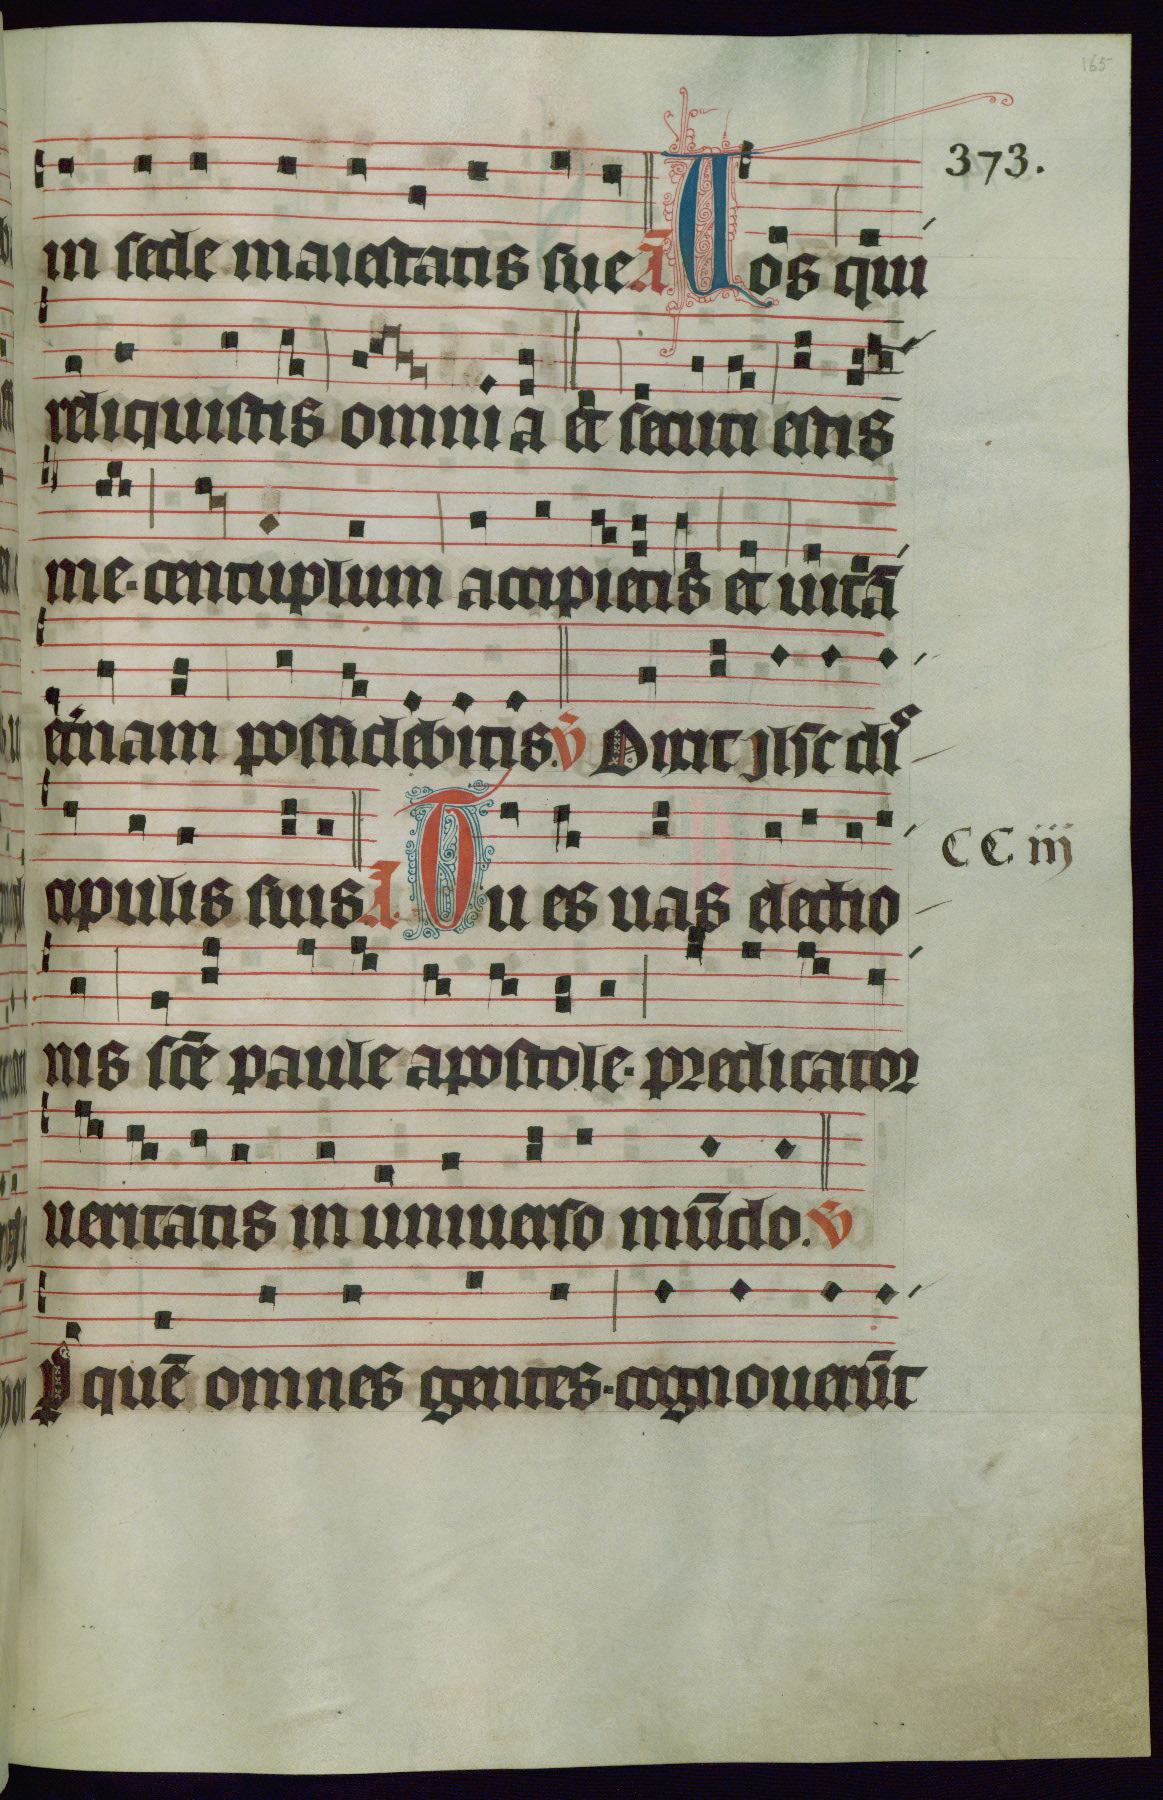 165
373.
in sede maiestatis sue Ā Uos qui
reliquistis omnia et secuti estis
me. centuplum accipietis et uitā
et̄nam possidebitis. V̄ Dixit ihc̄ di
CCiij
scipulis suis A. Tu es uas electio
nis scē paule apostole. predicator
ueritatis in uniuerso mūdo. V̄
P quē omnes gentes. cognouerūt